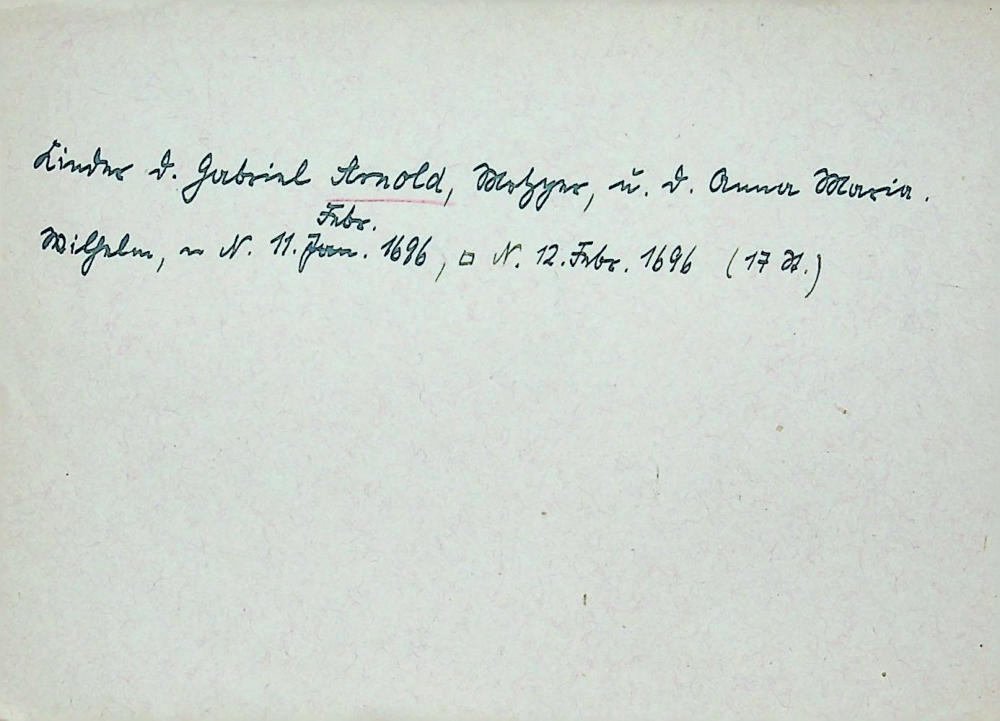 Kinder d. Gabriel Arnold, Metzger, u. d. Anna Maria.
Febr.
Wilhelm, ~ N. 11. Jan. 1696, □ N. 12. Febr. 1696 (17 St.)